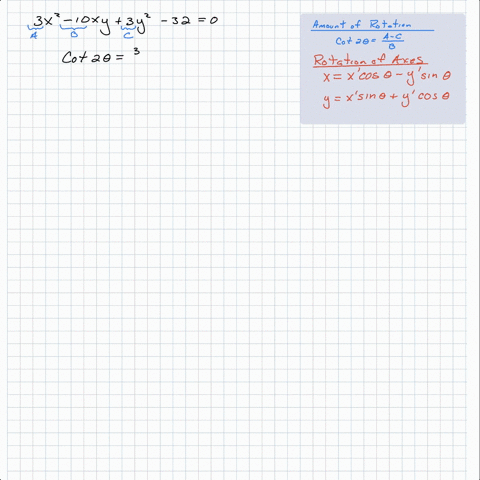 3x² - 10xy + 3y² - 32 = 0
A B C
Cot 2θ = 3
Amount of Rotation
Cot 2θ = A-C / B
Rotation of Axes
x = x' cos θ - y' sin θ
y = x' sin θ + y' cos θ